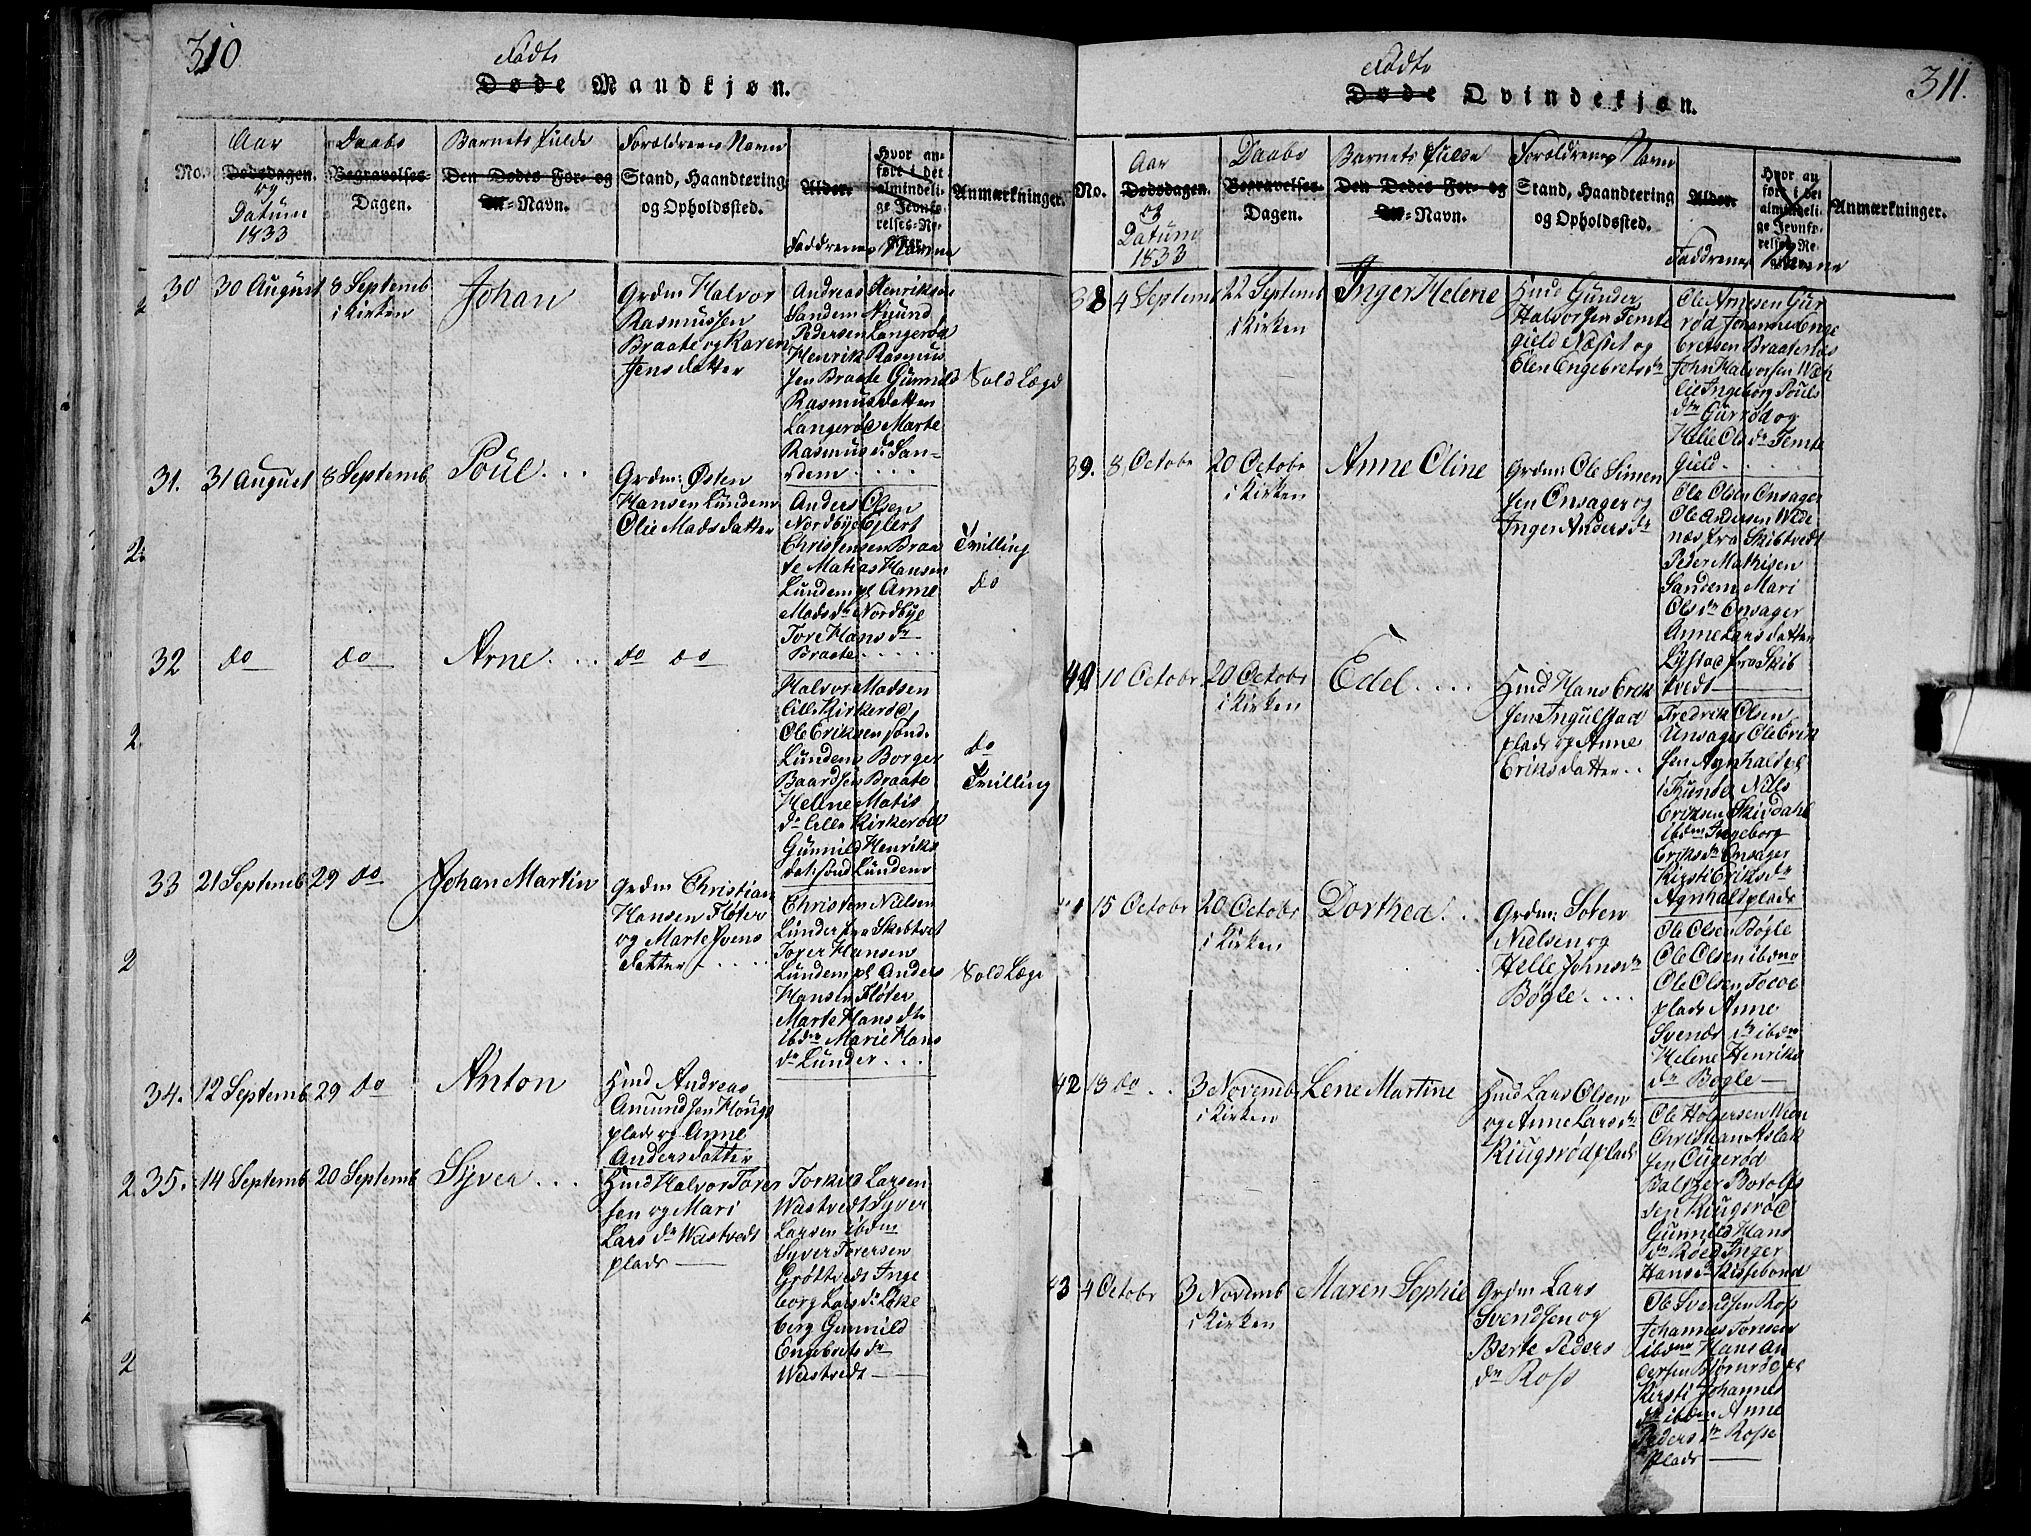 310
Fødte
Døde Mandkjøn.
No.
Aar
Dødsdagen.
og
Datum
1833
Daabs
Begravelses-
Dagen.
Barnets fulde
Den Dødes For- og
Navn.
Forældrenes Navn
Stand, Haandtering
og Opholdssted.
Alder.
Hvor an-
ført i det
almindeli-
ge Jevnfø-
relses-Re-
Faddrenes Navne
Anmærkninger.
30
30 August
8 Septemb
i Kirken
Johan
Grdm Halvor
Rasmussen
Braate og Karen
Jensdatter
Andreas Henriksen
Sandem
Pedersen Langerød
Henrik Rasmus
sen Braate Gunnild
Rasmusdatter
Langerød Marte
Rasmusdr San-
dem
Sold Lægd
31.
31 August
8 Septemb
Poul
Grdm: Østen
Hansen Lundem
Olie Madsdatter
Anders Olsen
Nordbye Ejlert
Christensen Braa
te Matias Hansen
Lundem pl Anne
Madsdr Nordbye
Tore Hansdr
Braate
Tvilling
do
2.
32
do
do
Arne
do do
Halvor Madsen
Lille Kirkerød
Ole Eriksen sønd.
Lundem Borger
Baardsen Braate
Hellne Matis
dr Lille Kirkerød
Gunnild Henriks
datr sønd Lundem
do
Tvilling
2.
33
21 Septemb
29 do
Johan Martin
Grdm Christian
Hansen Fløter
og Marte Svens
datter
Christen Nielsen
Lunder fra Skibtvet
Torer Hansen
Lundem pl Anders
Hansen Fløter
Marte Hansdtr
ibdm Marie Hans
dr Lunder
Sold Læge
2
34.
12 Septemb
29 do
Anton
Hmd Andreas
Amundsen Houg
plads og Anne
Andersdatter
2.
35.
14 Septemb
20 Septemb
Syver
Hmd Halvor Torer
sen og Mari
Larsdr Wastvedt
plads
Torkild Larsen
Wastvedt Syver
Larsen ibdm
Syver Torersen
Grøttvedt Inge
borg Larsdr Løke
berg Gunnild
Engebretsdr
Wastvedt
2
311.
Fødte
Døde Qvindekjøn.
No.
Aar
Dødsdagen.
og
Datum
1833
Daabs
Begravelses-
Dagen.
Barnets fulde
Den Dødes For- og
Navn.
Forældrenes Navn
Stand, Haandtering
og Opholdssted.
Alder.
Hvor an
ført i det
almindeli-
ge Jevnfø-
relses-Re-
Faddrenes Navne
Anmærkninger.
38
4 Septemb
22 Septemb
i Kirken
Inger Helene
Hmd Gunder
Halvorsen Temte
gield Næset og
Elen Engebretsdr
Ole Arnesen Gur
rød Johannes Enge
bretsen Braatestas
John Halvorsen
lie Ingeborg Pouls
dtr Gurrød og
Helle Olsdr Temte
gield
39.
8 Octobr
20 Octobr
i Kirken
Anne Oline
Grdm: Ole Simen
sen Onsager og
Inger Andersdr
Ole Olsen Onsager
Ole Andersen Wide
næs fra Skibtvedt
Peder Mathisen
Sandem Mari
Olsdr Onsager
Anne Larsdatter
Lystad fra Skib
tvedt
40
10 Octobr
20 Octobr
i Kirken
Edel
Hmd Hans Erik
sen Ingulstad
plads og Anne
Eriksdatter
Fredrik Olsen
Unsager Ole Erik
sen Agnhald pl
i Trunse Niels
Eriksen Skindahl
ibdm Ingeborg
Eriksdr Onsager
Kirsti Eriksdr
Agnhaldplads
15 Octobr
20 Octobr
i Kirken
Dorthea
Grdm: Soten
Nielsen og
Helle Johnsdr
Bøgle
Ole Olsen Bøgle
Ole Olsen ibdm
Ole Olsen Tocoe
plads Anne
Svensdr ibdm
Helene Henriks
dr Bøgle
42
13 do
3 Novembr
i Kirken
Lene Martine
Hmd Lars Olsen
og Anne Larsdr
Kiugsrødplads
Ole Holgersen Ween
Christian Aslak
sen Ougerød
Baltzer Botolfs
sen Kiugsrød
Gunnild Hans
dr Røed Inger
Hansdr Rissebond
43
4 Octobr
3 Novemb
i Kirken
Maren Sophie
Grdm Lars
Svendsen og
Berte Peders
dr Ross
Ole Svendsen Ross
Johannes Torsen
ibdm Hans An
dersen Biørnrød pl
Kirsti Johannes
dr ibdm Anne
Pedersdr Rosse
plads